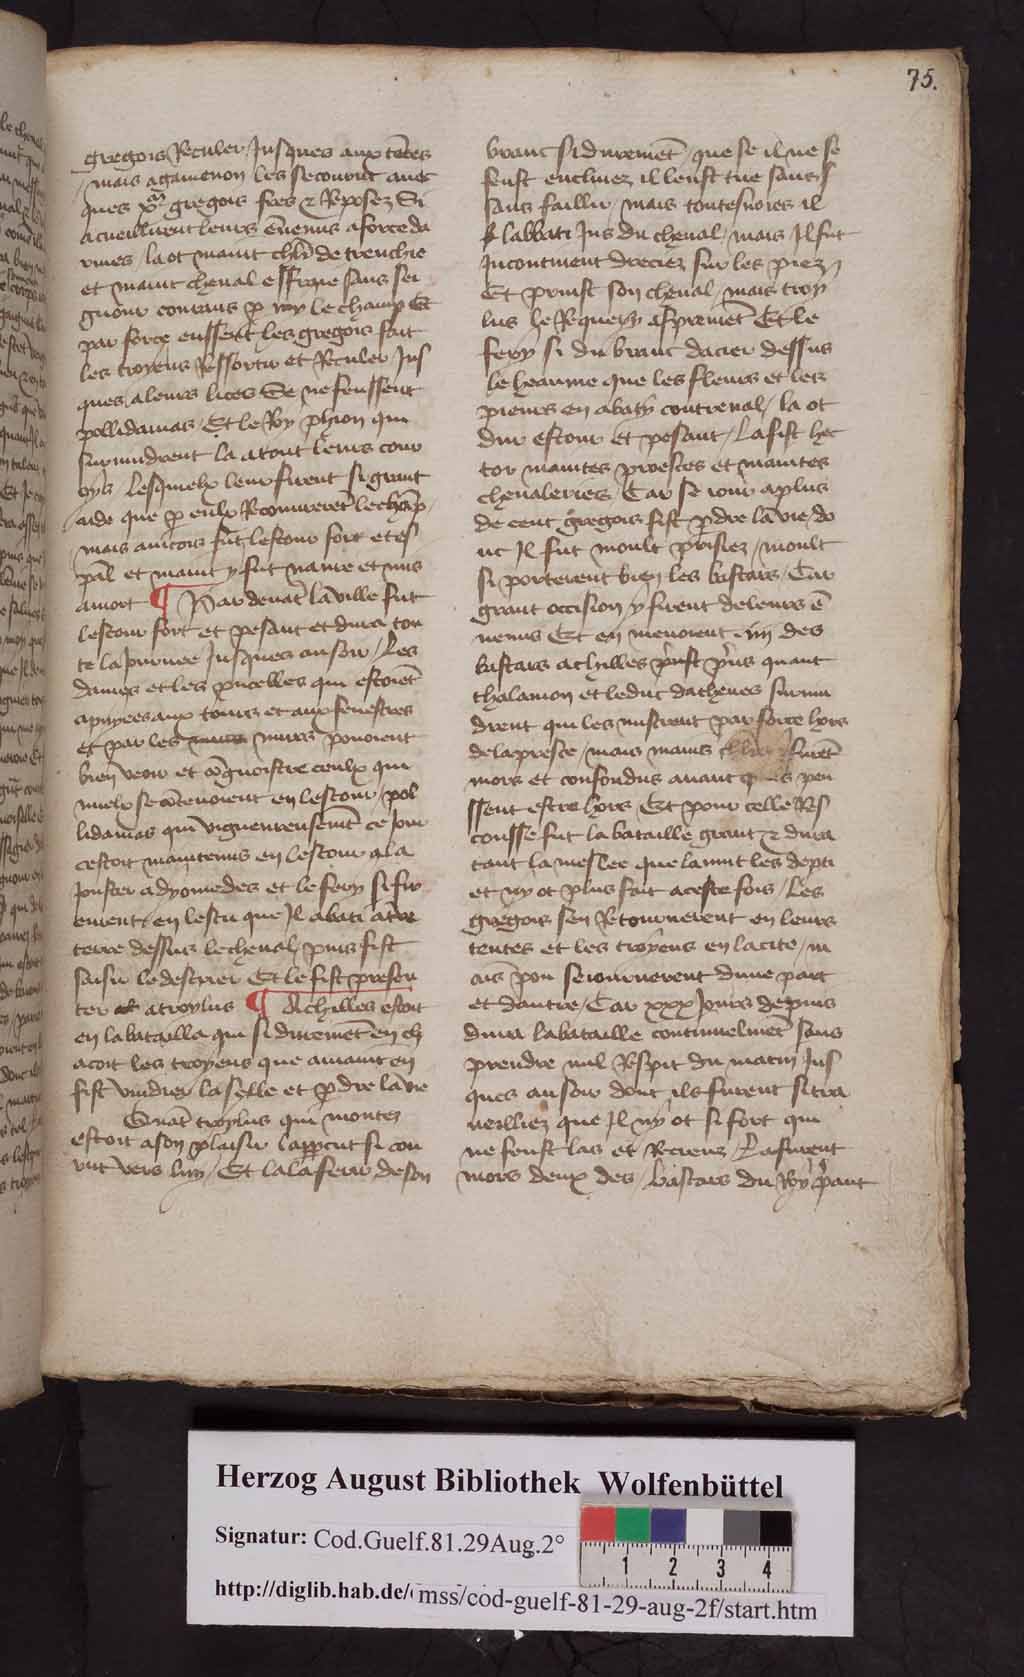 75.
gregois Reculer Jusques aux tētes
mais agamenon les secourut auec
ques xᵐ gregois fres & Reposez Si
acueullirent leurs ēnemis a force da
rmes / la ot maint chlr̄ de trenchie
et maint cheual effraye sans sei
gnour courans p my le champ Et
par force eussent les gregois fait
les troyens Ressortir et Reculer Jus
ques a leurs lices Se ne feussent
pollidamas Et le Roy phion qui
suruindrent la atout leurs cour
Lesquielx leur firent si grant
aide que p eulx Recouurerēt le chāp
mais aincois fut lestour fort et es
et maint y fut naure et mis
a mort ¶ Par deuāt la ville fut
lestour fort et pesant et dura tou
te la Journee Jusques au soir / Les
dames et les pucelles qui estoiēt
apuyees aux tours et aux fenestres
et par les murs pouoient
bien veoir et cōgnoistre ceulx qui
mielx se cōtenoient en lestour / pol
lidamas qui viguereusemt̄ ce Jour
cestoit maintenus en lestour ala
Jouster a dyomedes et le fery si fie
rement en lescu que Jl abati a
terre dessus le cheual / puis fist
saisir le destrier Et le fist presen
ter a troylus ¶ Achilles estoit
en la batailla qui si duremēt en ch
acoit les troyens que a maint en
fist vuidier la selle et p dre la vie
Quāt troylus qui montez
estoit a son plaisir lappcut si cou
rut vers luy / Et lala ferir de son
branc si duremēt / que se il ne se
feust enclinez il leust tue sans
sans faillir / mais toutesuoies il
labbati Jus du cheual / mais Jl fut
Jncontinent dreciez sur les piez
Et prinst son cheual / mais troy
lus le Requery asprement Et le
fery si du branc dacier dessus
le heaume que les fleurs et les
pierres en abaty contreual / la ot
dur estour et pesant / La fist hec
tor maintes proesces et maintes
cheualeries Car se iour a plus
de cent gregois fist p dre la vie / do
nt Jl fut moult prisiez / moult
si porterent bien les bastars / Car
grant occision y firent de leurs ē
nemis Et en menoient .iiii des
bastars achilles prinst pris quant
thalamon et le duc dathenes suruin
drent qui les mistrent par force hors
de la presce / mais mains furēt
mors et confondus auant peu
ssent estre hors Et pour celle Res
cousse fut la bataille grant & dura
tant la meslee que la nuit les depti
et ny ot plus fait a ceste fois / Les
gregois sen Retournerent en leurs
tentes et les troyens en la cite / m
ais pou seiournerent dune part
et dautre / Car xxx Jours depuis
dura la bataille continuelmēt sans
prendre nul Respit du matin Jus
ques au soir dont ils furent si tra
ueilliez que Jl ny ot si fort qui
ne feust las et Recreuz / La furent
mors deux des bastars du Roy priant
Herzog August Bibliothek Wolfenbüttel
Signatur: Cod.Guelf.81.29Aug.2°
http://diglib.hab.de/mss/cod-guelf-81-29-aug-2f/start.htm
1 2 3 4